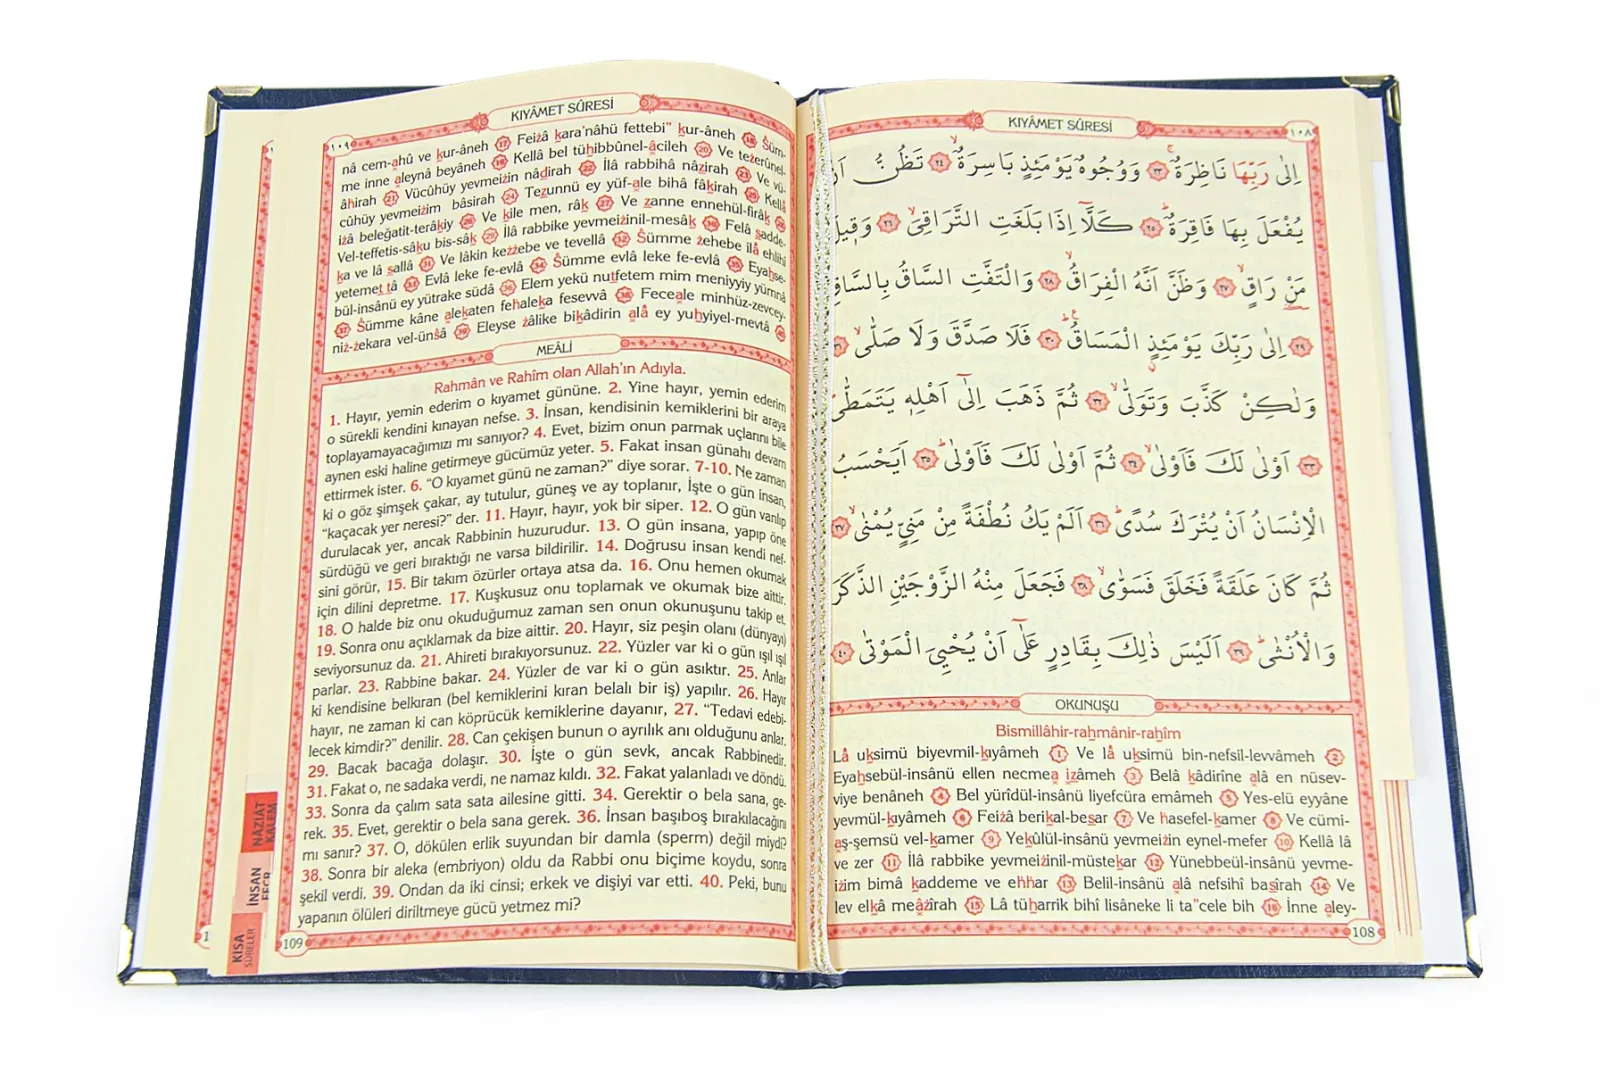 KIYÂMET SÛRESİ
١٠٨
اِلٰى رَبِّهَا نَاظِرَةٌ ﴿٢٣﴾ وَوُجُوهٌ يَوْمَئِذٍ بَاسِرَةٌ ﴿٢٤﴾ تَظُنُّ اَنْ
يُفْعَلَ بِهَا فَاقِرَةٌ ﴿٢٥﴾ كَلَّٓا اِذَا بَلَغَتِ التَّرَاقِىَ ﴿٢٦﴾ وَق۪يلَ
مَنْ رَاقٍ ﴿٢٧﴾ وَظَنَّ اَنَّهُ الْفِرَاقُ ﴿٢٨﴾ وَالْتَفَّتِ السَّاقُ بِالسَّاقِ
﴿٢٩﴾ اِلٰى رَبِّكَ يَوْمَئِذٍ الْمَسَاقُ ﴿٣٠﴾ فَلَا صَدَّقَ وَلَا صَلّٰى ﴿٣١﴾
وَلٰكِنْ كَذَّبَ وَتَوَلّٰى ﴿٣٢﴾ ثُمَّ ذَهَبَ اِلٰٓى اَهْلِه۪ يَتَمَطّٰى
﴿٣٣﴾ اَوْلٰى لَكَ فَاَوْلٰى ﴿٣٤﴾ ثُمَّ اَوْلٰى لَكَ فَاَوْلٰى ﴿٣٥﴾ اَيَحْسَبُ
الْاِنْسَانُ اَنْ يُتْرَكَ سُدًى ﴿٣٦﴾ اَلَمْ يَكُ نُطْفَةً مِنْ مَنِىٍّ يُمْنٰى ﴿٣٧﴾
ثُمَّ كَانَ عَلَقَةً فَخَلَقَ فَسَوّٰى ﴿٣٨﴾ فَجَعَلَ مِنْهُ الزَّوْجَيْنِ الذَّكَرَ
وَالْاُنْثٰى ﴿٣٩﴾ اَلَيْسَ ذٰلِكَ بِقَادِرٍ عَلٰٓى اَنْ يُحْيِىَ الْمَوْتٰى ﴿٤٠﴾
OKUNUŞU
Bismillâhir-rahmânir-rahîm
Lâ uksimü biyevmil-kıyâmeh 1 Ve lâ uksimü bin-nefsil-levvâmeh 2
Eyahsebül-insânü ellen necmea ızâmeh 3 Belâ kâdirîne alâ en nüsev-
viye benâneh 4 Bel yürîdül-insânü liyefcüra emâmeh 5 Yes-elü eyyâne
yevmül-kıyâmeh 6 Feizâ berikal-besar 7 Ve hasefel-kamer 8 Ve cümi-
aş-şemsü vel-kamer 9 Yekûlül-insânü yevmeizin eynel-mefer 10 Kellâ lâ
ve zer 11 İlâ rabbike yevmeizinil-müstekar 12 Yünebbeül-insânü yevme-
izim bimâ kaddeme ve ehhar 13 Belil-insânü alâ nefsihî basîrah 14 Ve
lev elkâ meâzîrah 15 Lâ tüharrik bihî lisâneke li ta"cele bih 16 İnne aley-
108
KIYÂMET SÛRESİ
١٠٩
nâ cem-ahû ve kur-âneh 17 Feizâ kara'nâhü fettebi" kur-âneh 18 Süm-
me inne aleynâ beyâneh 19 Kellâ bel tühibbûnel-âcileh 20 Ve tezerûnel-
âhirah 21 Vücûhüy yevmeizin nâdirah 22 İlâ rabbihâ nâzirah 23 Ve vü-
cûhüy yevmeizim bâsirah 24 Tezunnü ey yüf-ale bihâ fâkirah 25 Kellâ
izâ beleğatit-terâkiy 26 Ve kîle men, râk 27 Ve zanne ennehül-firâk 28
Vel-teffetis-sâku bis-sâk 29 İlâ rabbike yevmeizinil-mesâk 30 Felâ sadde-
ka ve lâ sallâ 31 Ve lâkin kezzebe ve tevellâ 32 Sümme zehebe ilâ ehlihî
yetemettâ 33 Evlâ leke fe-evlâ 34 Sümme evlâ leke fe-evlâ 35 Eyahse-
bül-insânü ey yütrake südâ 36 Elem yekü nutfetem mim meniyyiy yümnâ
37 Sümme kâne alekaten fehaleka fesevvâ 38 Feceale minhüz-zevcey-
niz-zekara vel-ünsâ 39 Eleyse zâlike bikâdirin alâ ey yuhyiyel-mevtâ 40
MEÂLİ
Rahmân ve Rahîm olan Allah'ın Adıyla.
1. Hayır, yemin ederim o kıyamet gününe. 2. Yine hayır, yemin ederim
o sürekli kendini kınayan nefse. 3. İnsan, kendisinin kemiklerini bir araya
toplayamayacağımızı mı sanıyor? 4. Evet, bizim onun parmak uçlarını bile
aynen eski haline getirmeye gücümüz yeter. 5. Fakat insan günahı devam
ettirmek ister. 6. "O kıyamet günü ne zaman?" diye sorar. 7-10. Ne zaman
ki o göz şimşek çakar, ay tutulur, güneş ve ay toplanır, İşte o gün insan,
"kaçacak yer neresi?" der. 11. Hayır, hayır, yok bir siper. 12. O gün varılıp
durulacak yer, ancak Rabbinin huzurudur. 13. O gün insana, yapıp öne
sürdüğü ve geri bıraktığı ne varsa bildirilir. 14. Doğrusu insan kendi nef-
sini görür, 15. Bir takım özürler ortaya atsa da. 16. Onu hemen okumak
için dilini depretme. 17. Kuşkusuz onu toplamak ve okumak bize aittir.
18. O halde biz onu okuduğumuz zaman sen onun okunuşunu takip et.
19. Sonra onu açıklamak da bize aittir. 20. Hayır, siz peşin olanı (dünyayı)
seviyorsunuz da. 21. Ahireti bırakıyorsunuz. 22. Yüzler var ki o gün ışıl ışıl
parlar. 23. Rabbine bakar. 24. Yüzler de var ki o gün asıktır. 25. Anlar
ki kendisine belkıran (bel kemiklerini kıran belalı bir iş) yapılır. 26. Hayır
hayır, ne zaman ki can köprücük kemiklerine dayanır, 27. "Tedavi edebi-
lecek kimdir?" denilir. 28. Can çekişen bunun o ayrılık anı olduğunu anlar.
29. Bacak bacağa dolaşır. 30. İşte o gün sevk, ancak Rabbinedir.
31. Fakat o, ne sadaka verdi, ne namaz kıldı. 32. Fakat yalanladı ve döndü.
33. Sonra da çalım sata sata ailesine gitti. 34. Gerektir o bela sana, ge-
rek. 35. Evet, gerektir o bela sana gerek. 36. İnsan başıboş bırakılacağını
mı sanır? 37. O, dökülen erlik suyundan bir damla (sperm) değil miydi?
38. Sonra bir aleka (embriyon) oldu da Rabbi onu biçime koydu, sonra
şekil verdi. 39. Ondan da iki cinsi; erkek ve dişiyi var etti. 40. Peki, bunu
yapanın ölüleri diriltmeye gücü yetmez mi?
109
NÂZİÂT
KALEM
İNSAN
FECR
KISA
SÛRELER